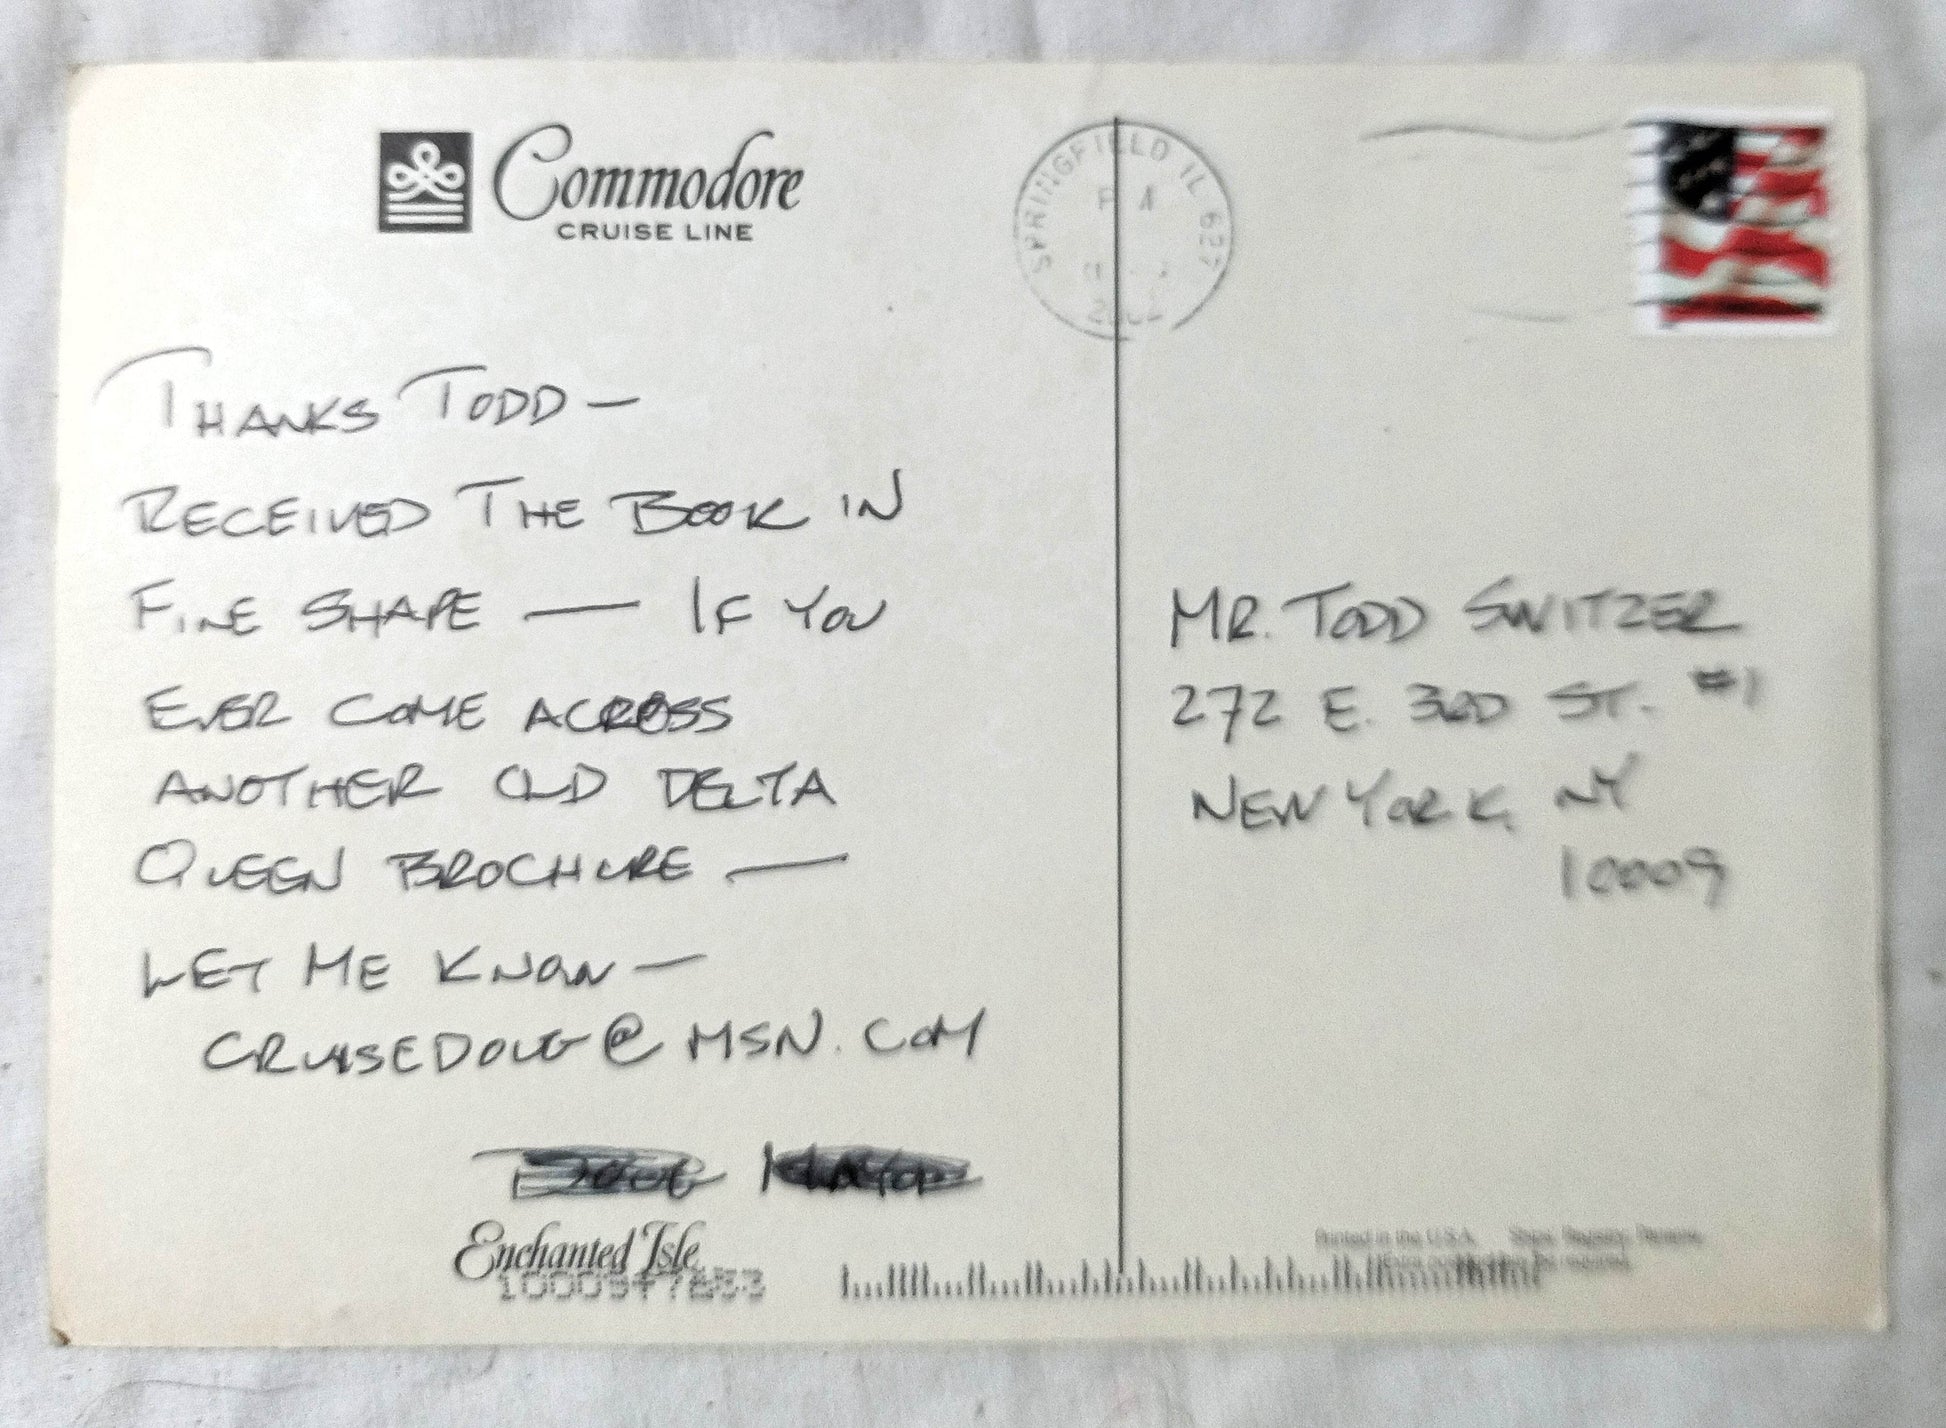 Commodore
CRUISE LINE
SPRINGFIELD IL 627
2002
THANKS TODD —
RECEIVED THE BOOK IN
FINE SHAPE — IF YOU
EVER COME ACROSS
ANOTHER OLD DELTA
QUEEN BROCHURE —
LET ME KNOW —
CRUISEDOUG@MSN.COM
DOUG
Enchanted Isle
MR. TODD SWITZER
272 E. 3RD ST. #1
NEW YORK, NY
10009
Printed in the U.S.A. Ships' Registry: Panama